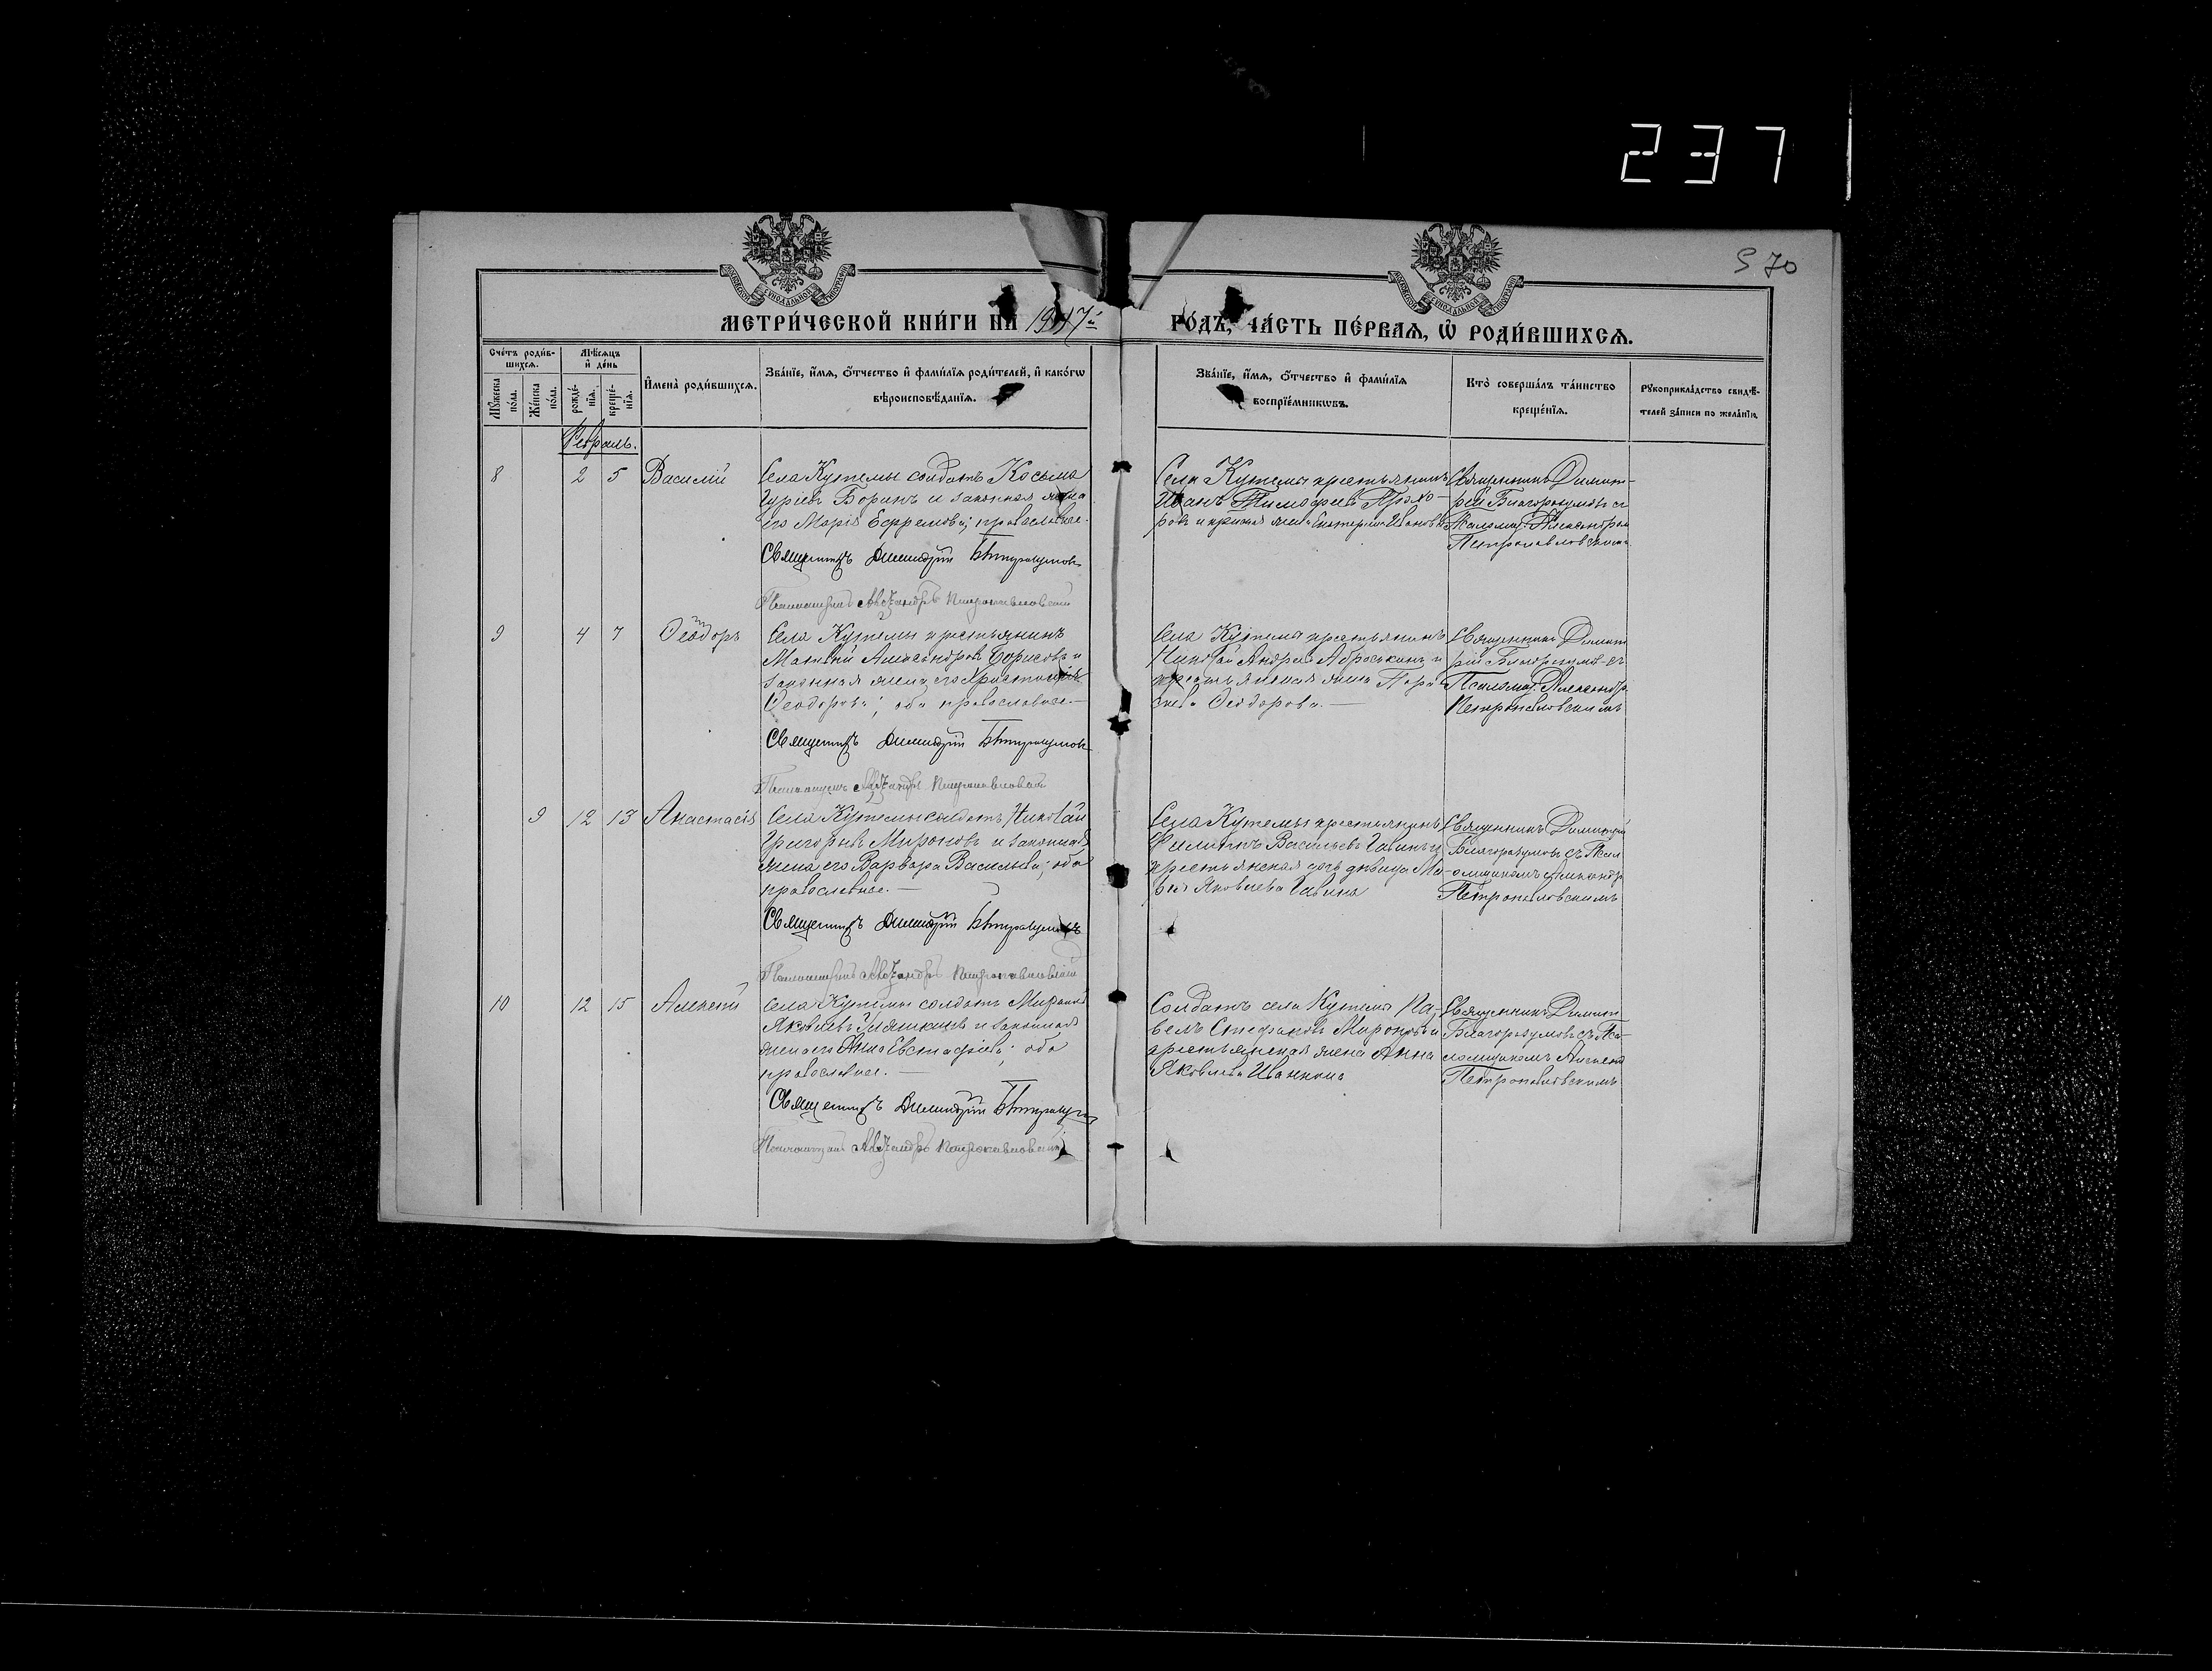 237
S 70
МОСКОВСКОЙ СѴНОДАЛЬНОЙ ТИПОГРАФІИ
МОСКОВСКОЙ СѴНОДАЛЬНОЙ ТИПОГРАФІИ
МЕТРИ́ЧЕСКОЙ КНИ́ГИ НА 1917й
РО́ДЪ, ЧА́СТЬ ПЕ́РВАѦ, Ѡ҆ РОДИ́ВШИХСѦ.
Сче́тъ роди́в-
шихсѧ.
Мꙋ́жеска по́ла.
Же́нска по́ла.
Мѣ́сѧцъ
и҆ де́нь
рожде́-
нїѧ.
креще́-
нїѧ.
И҆мена̀ роди́вшихсѧ.
Зва́нїе, и҆́мѧ, ѻ҆́тчество и҆ фами́лїѧ роди́телей, и҆ како́гѡ
вѣроисповѣ́данїѧ.
Зва́нїе, и҆́мѧ, ѻ҆́тчество и҆ фами́лїѧ
воспрїе́мникѡвъ.
Кто̀ соверша́лъ та́инство
креще́нїѧ.
Рꙋкоприкла́дство свидѣ́-
телей за́писи по жела́нїю.
Февраль.
8
2
5
Василій
Села Кутемы солдатъ Косьма
Гурьевъ Боринъ и законная жена
его Марія Ефремова; православные.
Священникъ Димитрій Благоразумовъ
Псаломщикъ Александръ Петропавловскій
Села Кутемы крестьянинъ
Иванъ Тимофеевъ Прохо-
ровъ и жена Екатерина Иванова
Священникъ Димит-
рій Благоразумовъ съ
Псаломщ. Александром
Петропавловскимъ
9
4
7
Ѳеодоръ
Села Кутемы крестьянинъ
Матвей Александровъ Борисовъ и
законная жена его
Ѳеодорова; оба православные.
Священникъ Димитрій Благоразумовъ
Псаломщикъ Александръ Петропавловскій
Села Кутемы крестьянинъ
Николай Андреевъ Аброськинъ и
крестьянская жена Пара-
скева Ѳеодорова.
Священникъ Димит
рій Благоразумовъ съ
Псаломщ. Александр
Петропавловскимъ
9
12
13
Анастасія
Села Кутемы солдатъ Николай
Григорьевъ Мироновъ и законная
жена его Варвара Васильева; оба
православные.
Священникъ Димитрій Благоразумовъ
Псаломщикъ Александръ Петропавловскій
Села Кутемы крестьянинъ
Филиппъ Васильевъ и
крестьянская дочь девица Ма-
Яковлева
Священникъ Димитрій
Благоразумовъ съ Псал
омщикомъ Александр
Петропавловскимъ
10
12
15
Алексей
Села Кутемы солдатъ Миронъ
Яковлевъ и законная
жена его Анна Евстафіева; оба
православные.
Священникъ Димитрій Благоразумовъ
Псаломщикъ Александръ Петропавловскій
Солдатъ села Кутемы Па-
велъ Стефановъ Мироновъ и
крестьянская жена Анна
Яковлева
Священникъ Димит
Благоразумовъ съ Пса-
ломщикомъ Александ
Петропавловскимъ